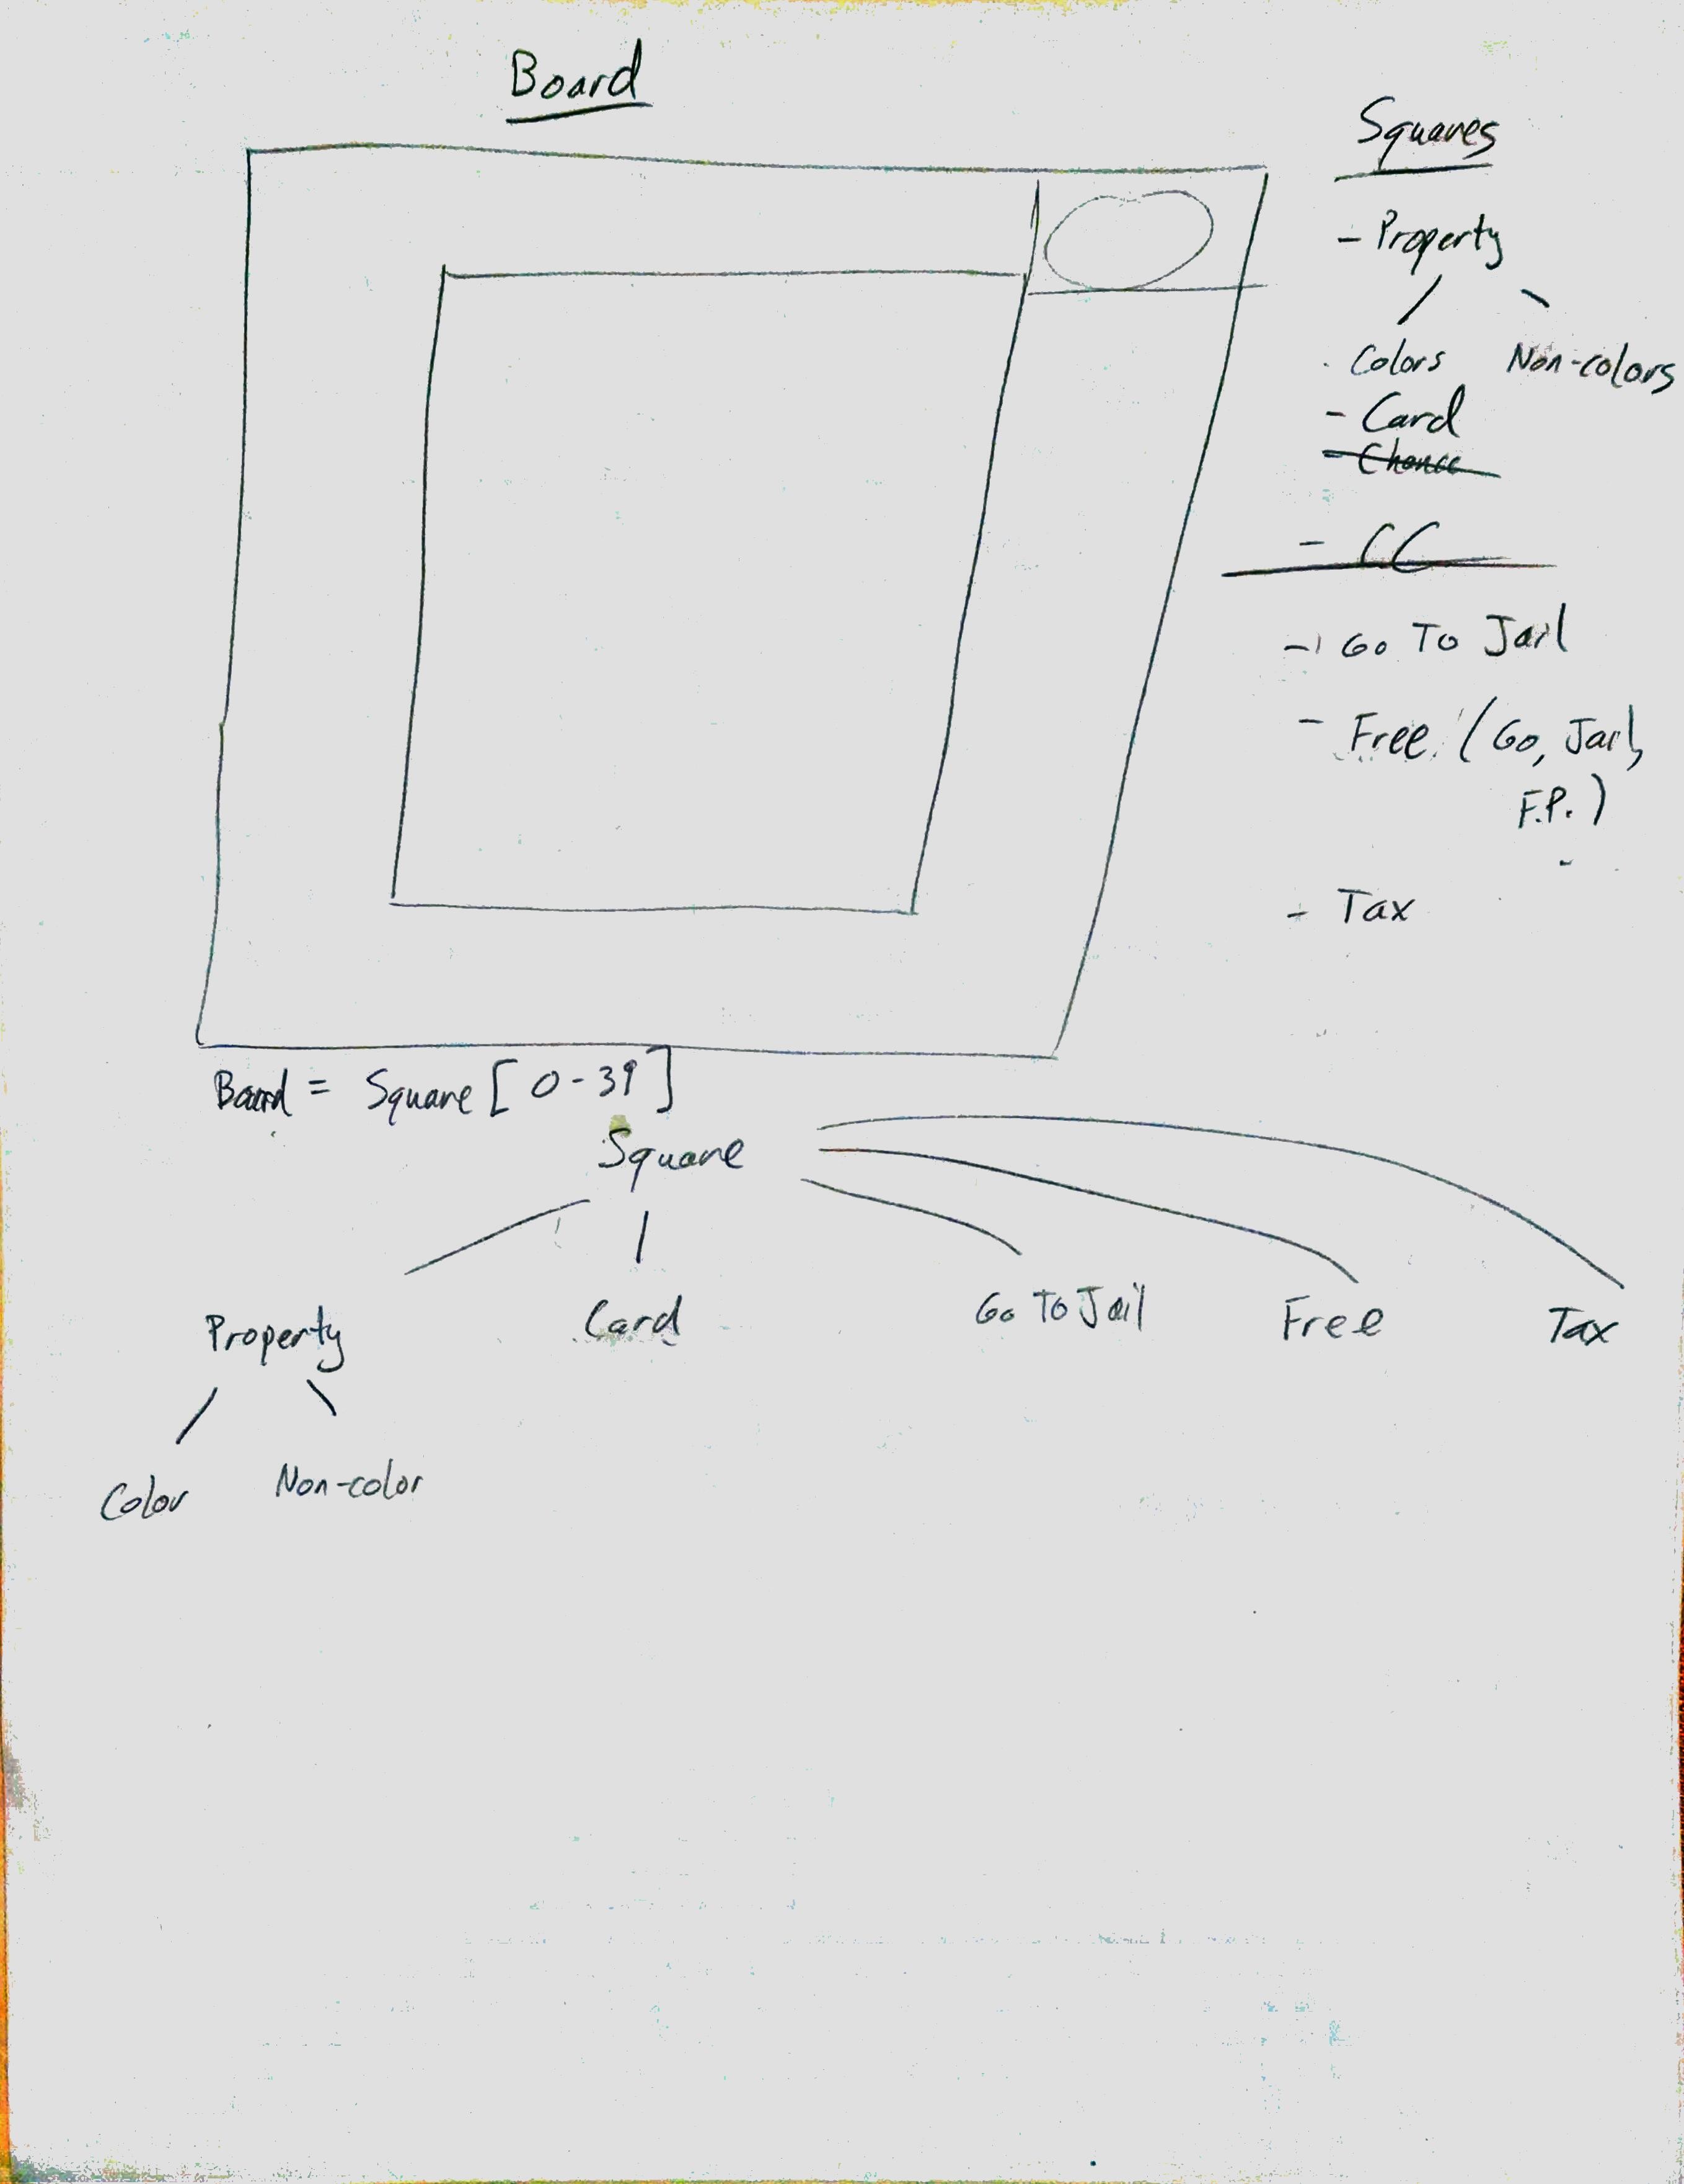 Board
Squares
- Property
Colors Non-colors
- Card
- Chance
- CC
- Go To Jail
- Free (Go, Jail,
F.P.)
- Tax
Board = Square [0-39]
Square
Property Card Go To Jail Free Tax
Color Non-color